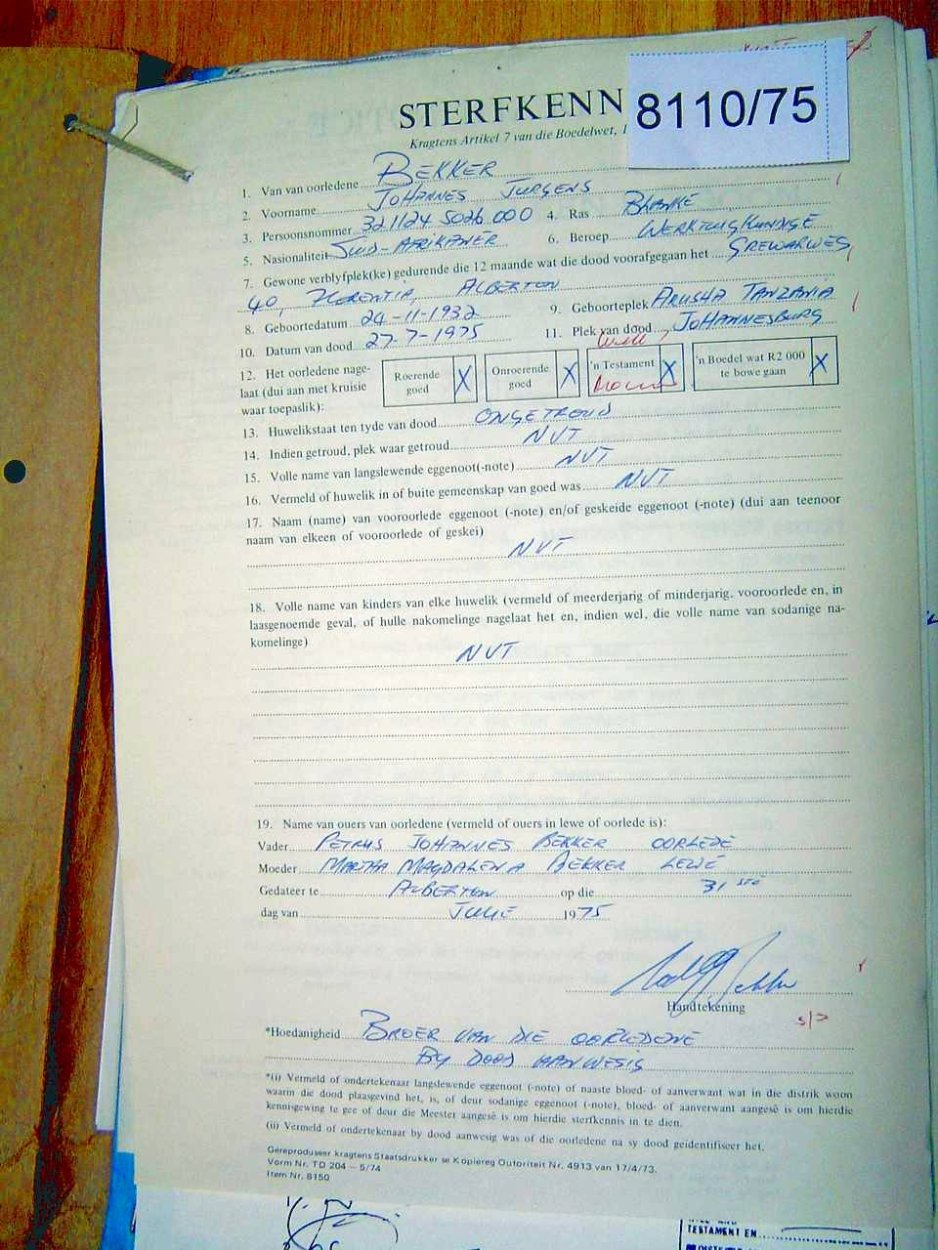 STERFKENN
8110/75
Kragtens Artikel 7 van die Boedelwet, 1
1. Van van oorledene BEKKER
2. Voorname JOHANNES JURGENS
3. Persoonsnommer 321124 5026 000 4. Ras BLANKE
5. Nasionaliteit SUID-AFRIKANER 6. Beroep WERKTUIGKUNDIGE
7. Gewone verblyfplek(ke) gedurende die 12 maande wat die dood voorafgegaan het GREWARWEG
40, FLORENTIA, ALBERTON
8. Geboortedatum 24-11-1932 9. Geboorteplek ARUSHA TANZANIA
10. Datum van dood 27-7-1975 11. Plek van dood JOHANNESBURG
12. Het oorledene nage- Roerende X Onroerende X 'n Testament X 'n Boedel wat R2 000 X
laat (dui aan met kruisie goed goed te bowe gaan
waar toepaslik):
13. Huwelikstaat ten tyde van dood ONGETROUD
14. Indien getroud, plek waar getroud NVT
15. Volle name van langslewende eggenoot(-note) NVT
16. Vermeld of huwelik in of buite gemeenskap van goed was NVT
17. Naam (name) van vooroorlede eggenoot (-note) en/of geskeide eggenoot (-note) (dui aan teenoor
naam van elkeen of vooroorlede of geskei)
NVT
18. Volle name van kinders van elke huwelik (vermeld of meerderjarig of minderjarig, vooroorlede en, in
laasgenoemde geval, of hulle nakomelinge nagelaat het en, indien wel, die volle name van sodanige na-
komelinge)
NVT
19. Name van ouers van oorledene (vermeld of ouers in lewe of oorlede is):
Vader PETRUS JOHANNES BEKKER OORLEDE
Moeder MARTHA MAGDALENA BEKKER LEWE
Gedateer te ALBERTON op die 31 STE
dag van JULIE 1975
Handtekening
*Hoedanigheid BROER VAN DIE OORLEDENE
BY DOOD AANWESIG
*(i) Vermeld of ondertekenaar langslewende eggenoot (-note) of naaste bloed- of aanverwant wat in die distrik woon
waarin die dood plaasgevind het, is, of deur sodanige eggenoot (-note), bloed- of aanverwant aangesê is om hierdie
kennisgewing te gee of deur die Meester aangesê is om hierdie sterfkennis in te dien.
(ii) Vermeld of ondertekenaar by dood aanwesig was of die oorledene na sy dood geïdentifiseer het.
Gereproduseer kragtens Staatsdrukker se Kopiereg Outoriteit Nr. 4913 van 17/4/73.
Vorm Nr. TD 204 – 5/74
Item Nr. 8150
TESTAMENT EN